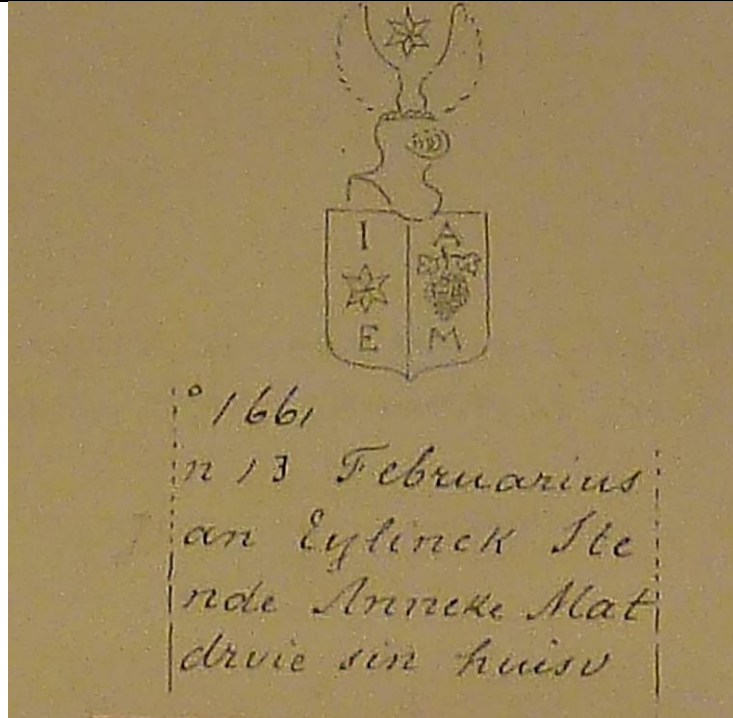 I A
E M
° 1661
n 13 Februarius
an Eylinck Ste
nde Anneke Mat
drvie sin huisv